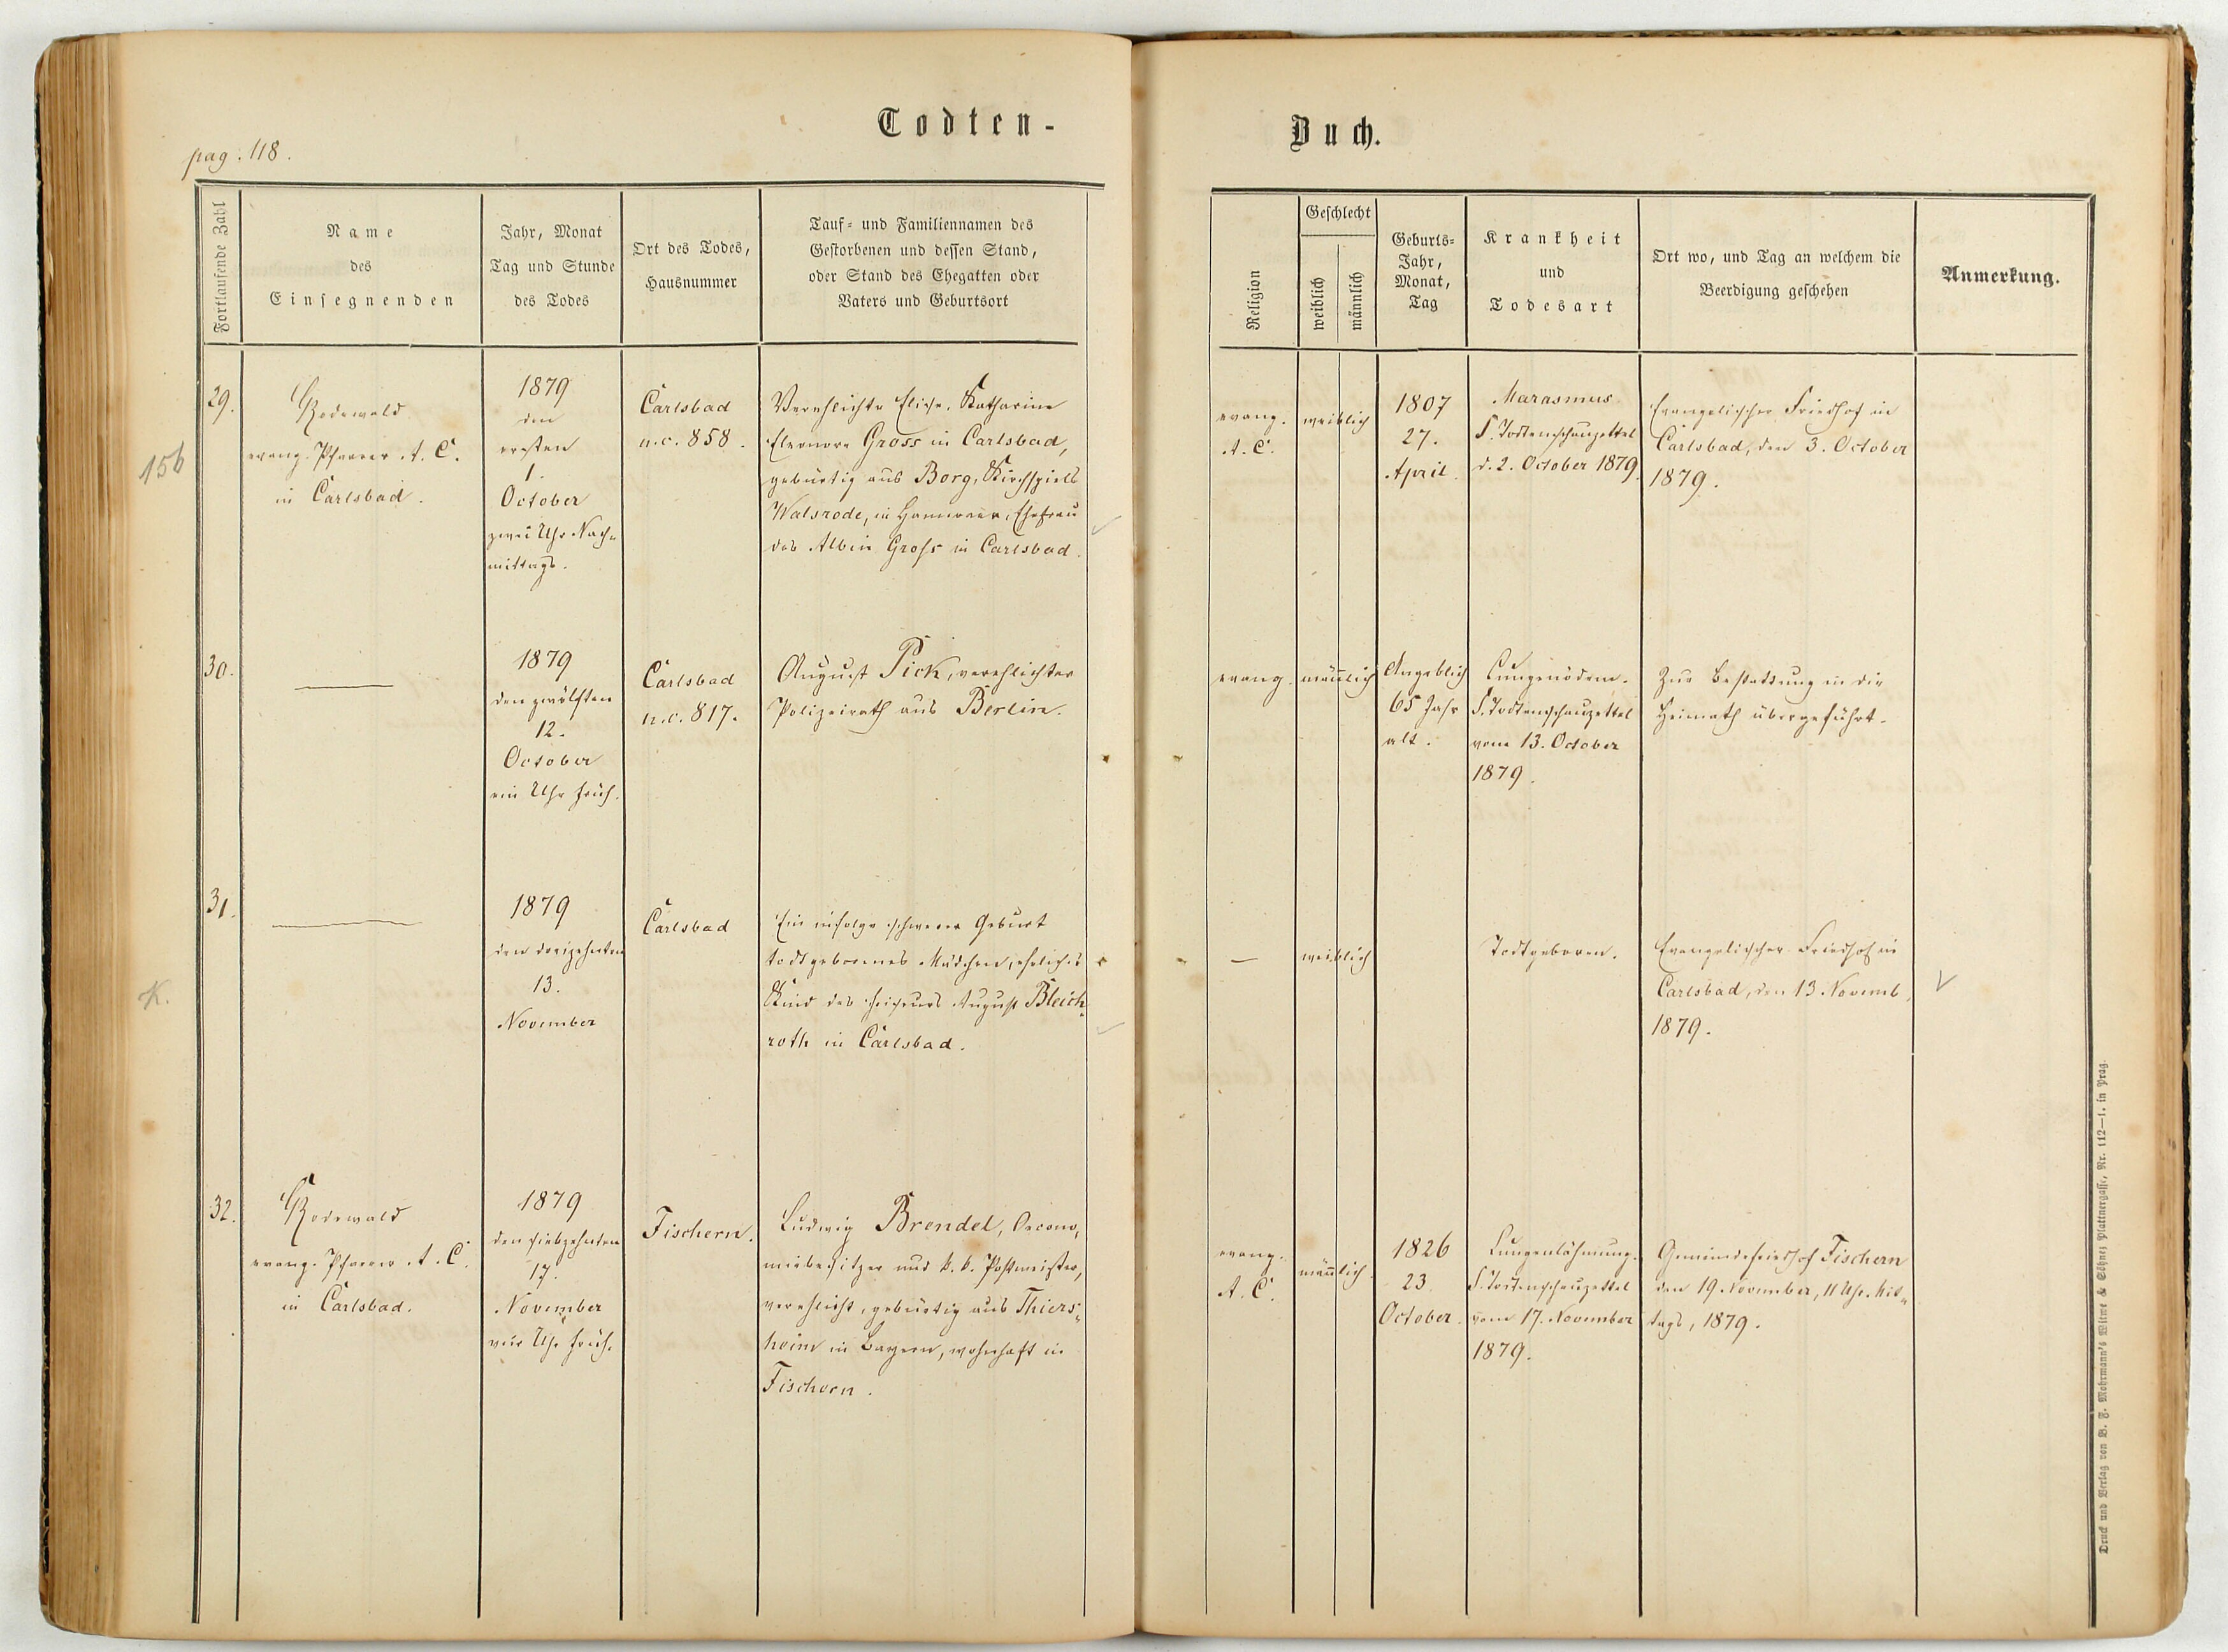 Todten-
Buch.
pag. 118.
Fortlaufende Zahl
Name
des
Einsegnenden
Jahr, Monat
Tag und Stunde
des Todes
Ort des Todes,
Hausnummer
Tauf- und Familiennamen des
Gestorbenen und dessen Stand,
oder Stand des Ehegatten oder
Vaters und Geburtsort
Religion
Geschlecht
weiblich
männlich
Geburts-
Jahr,
Monat,
Tag
Krankheit
und
Todesart
Ort wo, und Tag an welchem die
Beerdigung geschehen
Anmerkung.
156
29.
Rodewald
evang. Pfarrer A. C.
in Carlsbad.
1879
den
ersten
1.
October
zwei Uhr Nach-
mittags.
Carlsbad
n.c. 858.
Verehlichte Elise, Katharine
Eleonore Gross in Carlsbad,
gebürtig aus Borg, Kirchspiels
Walsrode, in Hannover, Ehefrau
des Albin Groß in Carlsbad.
evang.
A. C.
weiblich
1807
27.
April.
Marasmus.
S. Todtenschauzettel
d. 2. October 1879.
Evangelischer Friedhof in
Carlsbad, den 3. October
1879.
30.
1879
den zwölften
12.
October
ein Uhr früh.
Carlsbad
n.c. 817.
August Pick, verehlichter
Polizeirath aus Berlin.
evang.
männlich
Angeblich
65 Jahr
alt.
Lungenödem.
S. Todtenschauzettel
vom 13. October
1879.
Zur Bestattung in die
Heimath übergeführt.
31.
K.
1879
den dreizehnten
13.
November
Carlsbad
Ein infolge schwerer Geburt
todtgebornes Mädchen, eheliches
Kind des Friseurs August Bleich-
roth in Carlsbad.
—
weiblich
Todtgeboren.
Evangelischer Friedhof in
Carlsbad, den 13. Novemb.
1879.
32.
Rodewald
evang. Pfarrer A. C.
in Carlsbad.
1879
den siebzehnten
17.
November
vier Uhr früh.
Fischern.
Ludwig Brendel, Oecono-
miebesitzer und k. k. Postmeister,
verehlicht, gebürtig aus Thiers-
heim in Bayern, wohnhaft in
Fischern.
evang.
A. C.
männlich.
1826
23.
October.
Lungenlähmung.
S. Todtenschauzettel
vom 17. November
1879.
Gemeindefriedhof Fischern
den 19. November, 11 Uhr Mit-
tags, 1879.
Druck und Verlag von B. F. Mohrmann's Witwe & Söhne, Plattnergasse, Nr. 112—1. in Prag.